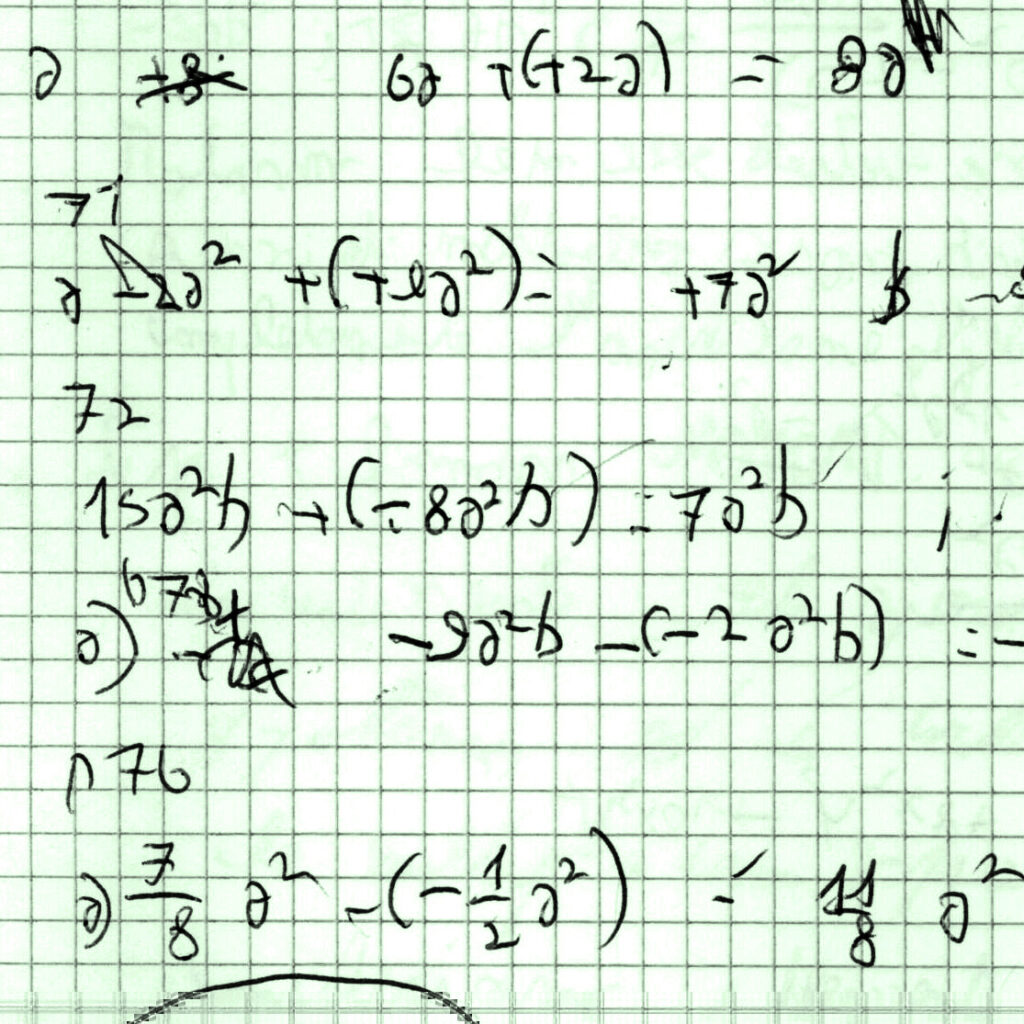 a 6a +(+2a) = 8a
71
a -2a² +(+9a²)= +7a² b
72
15a²b +(-8a²b) = 7a²b ;
a) -9a²b -(-2a²b) = -
n 76
a) 7/8 a² -(-1/2 a²) = 11/8 a²